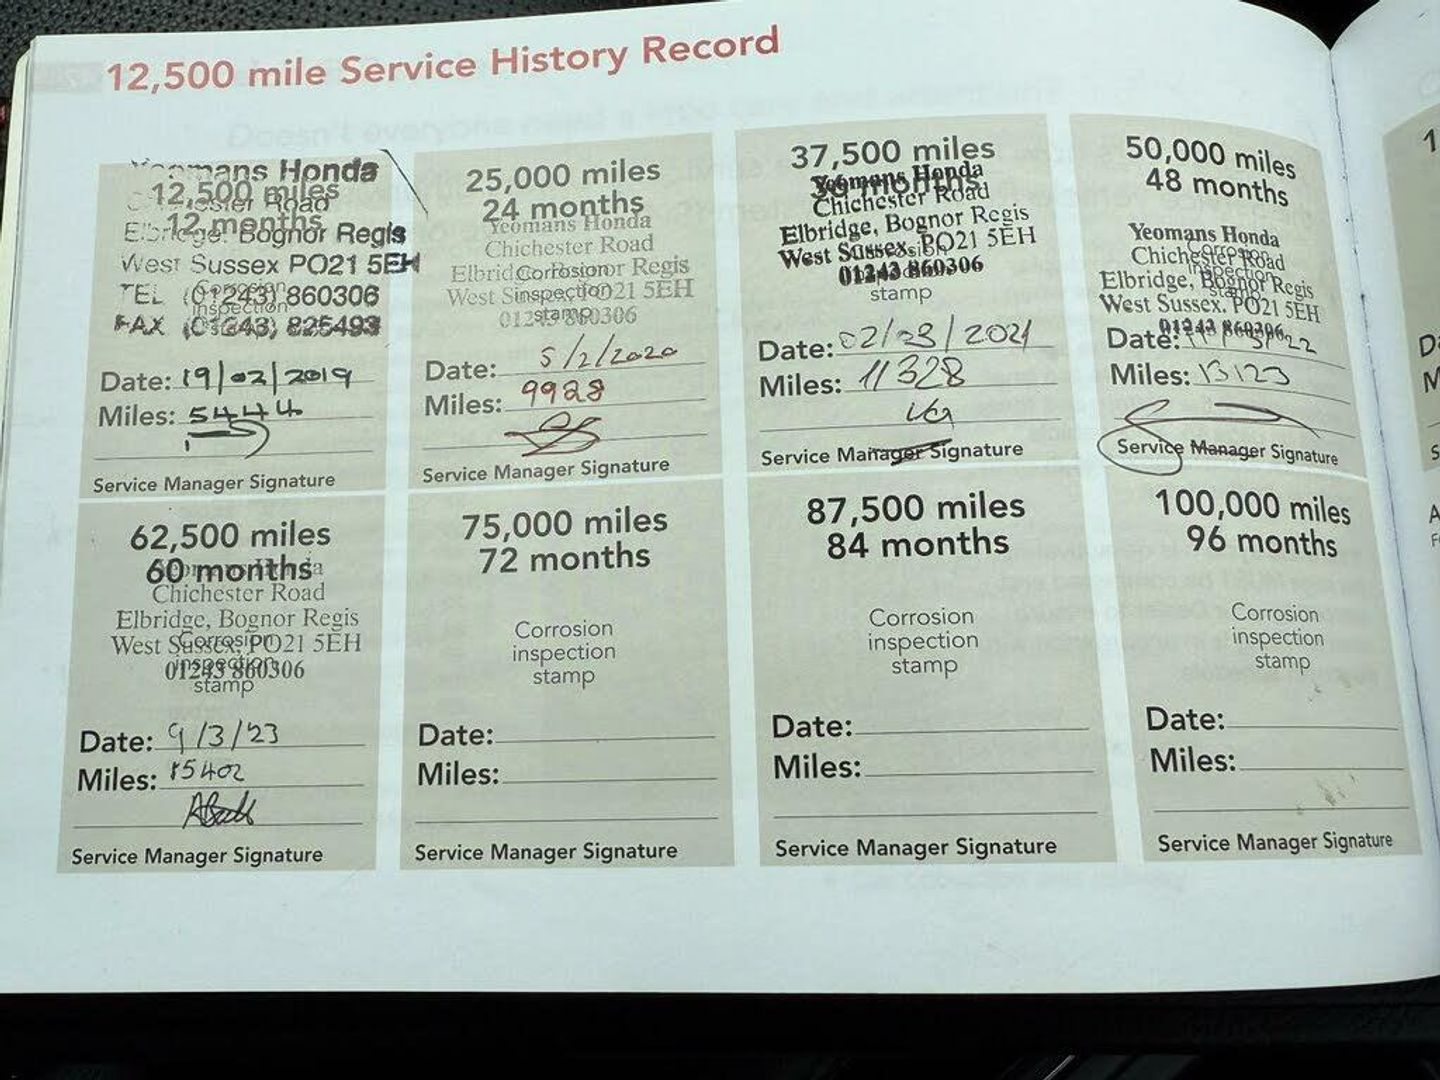 12,500 mile Service History Record
Yeomans Honda
12,500 miles
Road
12 months
Elbridge, Bognor Regis
West Sussex PO21 5EH
TEL (01243) 860306
Corrosion
inspection
FAX (01243) 825493
Date: 19/02/2019
Miles: 5444
Service Manager Signature
25,000 miles
24 months
Yeomans Honda
Chichester Road
Elbridge, Bognor Regis
Corrosion
West Sussex, PO21 5EH
inspection
stamp
01243 860306
Date: 5/2/2020
Miles: 9928
Service Manager Signature
37,500 miles
36 months
Yeomans Honda
Chichester Road
Elbridge, Bognor Regis
West Sussex, PO21 5EH
01243 860306
stamp
Date: 02/23/2021
Miles: 11328
Service Manager Signature
50,000 miles
48 months
Yeomans Honda
Chichester Road
Corrosion
inspection
Elbridge, Bognor Regis
stamp
West Sussex. PO21 5EH
01243 860306
Date:
Miles: 13123
Service Manager Signature
62,500 miles
60 months
Chichester Road
Elbridge, Bognor Regis
West Sussex, PO21 5EH
Corrosion
inspection
01243 860306
stamp
Date: 9/3/23
Miles: 15402
Service Manager Signature
75,000 miles
72 months
Corrosion
inspection
stamp
Date:
Miles:
Service Manager Signature
87,500 miles
84 months
Corrosion
inspection
stamp
Date:
Miles:
Service Manager Signature
100,000 miles
96 months
Corrosion
inspection
stamp
Date:
Miles:
Service Manager Signature